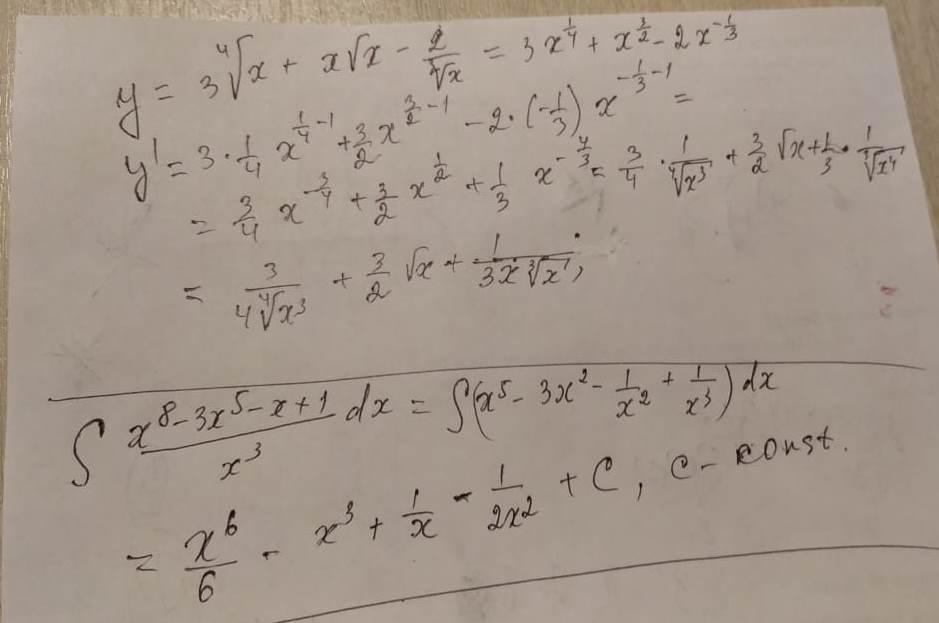 y = 3 ∜x + x√x − 2/∛x = 3x^{1/4} + x^{3/2} − 2x^{−1/3}
y' = 3 · 1/4 x^{1/4 − 1} + 3/2 x^{3/2 − 1} − 2 · (−1/3) x^{−1/3 − 1} =
= 3/4 x^{−3/4} + 3/2 x^{1/2} + 1/3 x^{−4/3} = 3/4 · 1/∜x³ + 3/2 √x + 1/3 · 1/∛x⁴
= 3/(4∜x³) + 3/2 √x + 1/(3x∛x);
∫ (x⁸ − 3x⁵ − x + 1)/x³ dx = ∫(x⁵ − 3x² − 1/x² + 1/x³) dx
= x⁶/6 − x³ + 1/x − 1/(2x²) + C, C − const.